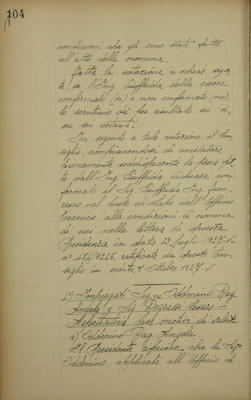 104
condizioni che gli sono state fatte
all'atto della nomina.
Fatta la votazione a schede segre
te l'Ing. Scuffrida della essere
confermato (si) o non confermato (no),
lo scrutinio dà per risultato si
su votanti.
In seguito a tale votazione il Con
siglio, compiacendosi di constatare
pienamente soddisfacente la prova fat
ta dall'Ing. Scuffrida, dichiara con
fermato il Sig. Scuffrida Ing. Fran
cesco nel posto di Capo dell'Ufficio
Tecnico, alle condizioni di nomina
di cui nella lettera di questa
Presidenza in data 23 luglio 1927
ratificata da questo Con
siglio in seduta 7 Ottobre 1927
Impiegati Sig.na Rag.
Angela e Sig. Cesare
Aspettativa per motivi di salute
a) Rag. Angela
Il Presidente riferisce che la Sig.na
applicata all'Ufficio di